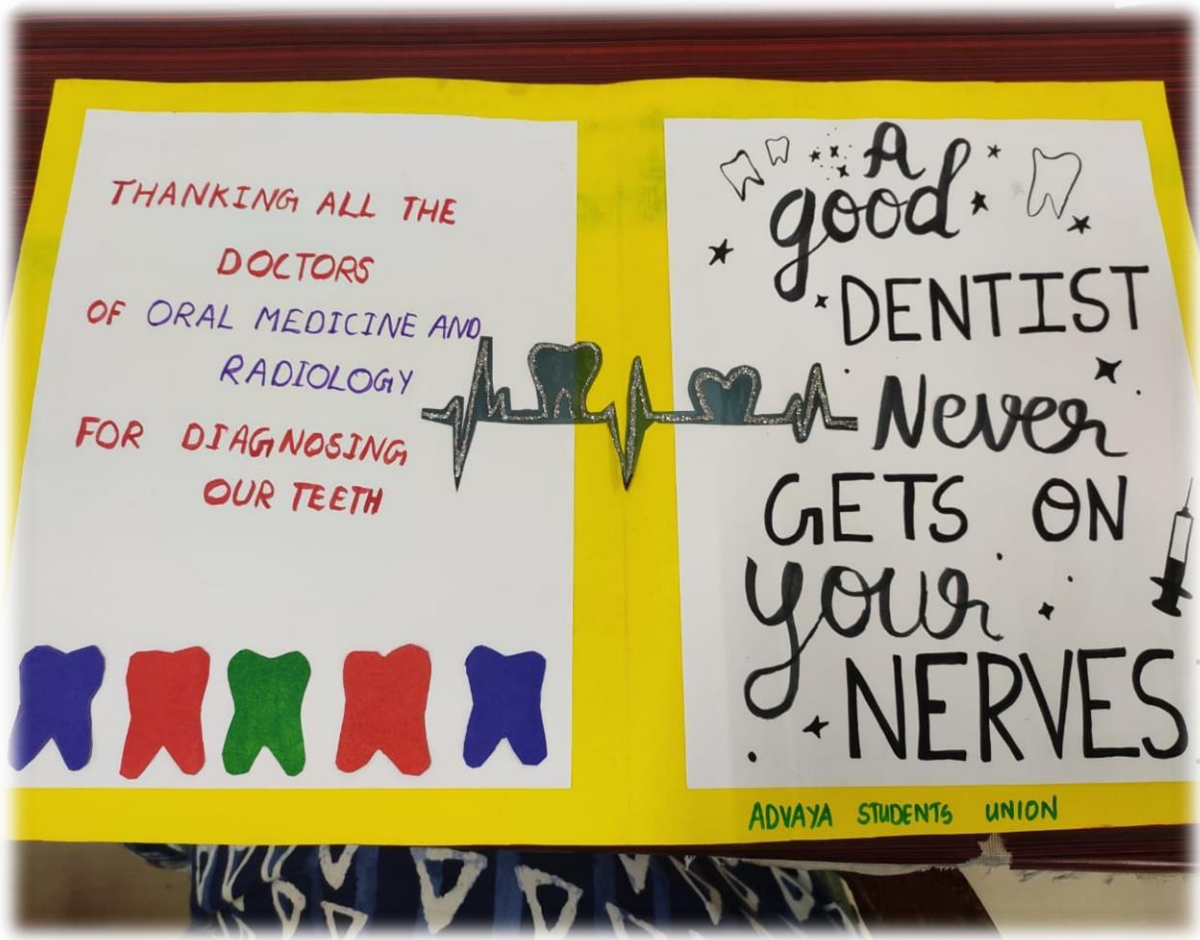 THANKING ALL THE
DOCTORS
OF ORAL MEDICINE AND
RADIOLOGY
FOR DIAGNOSING
OUR TEETH
A
good
DENTIST
Never
GETS ON
your
NERVES
ADVAYA STUDENTS UNION